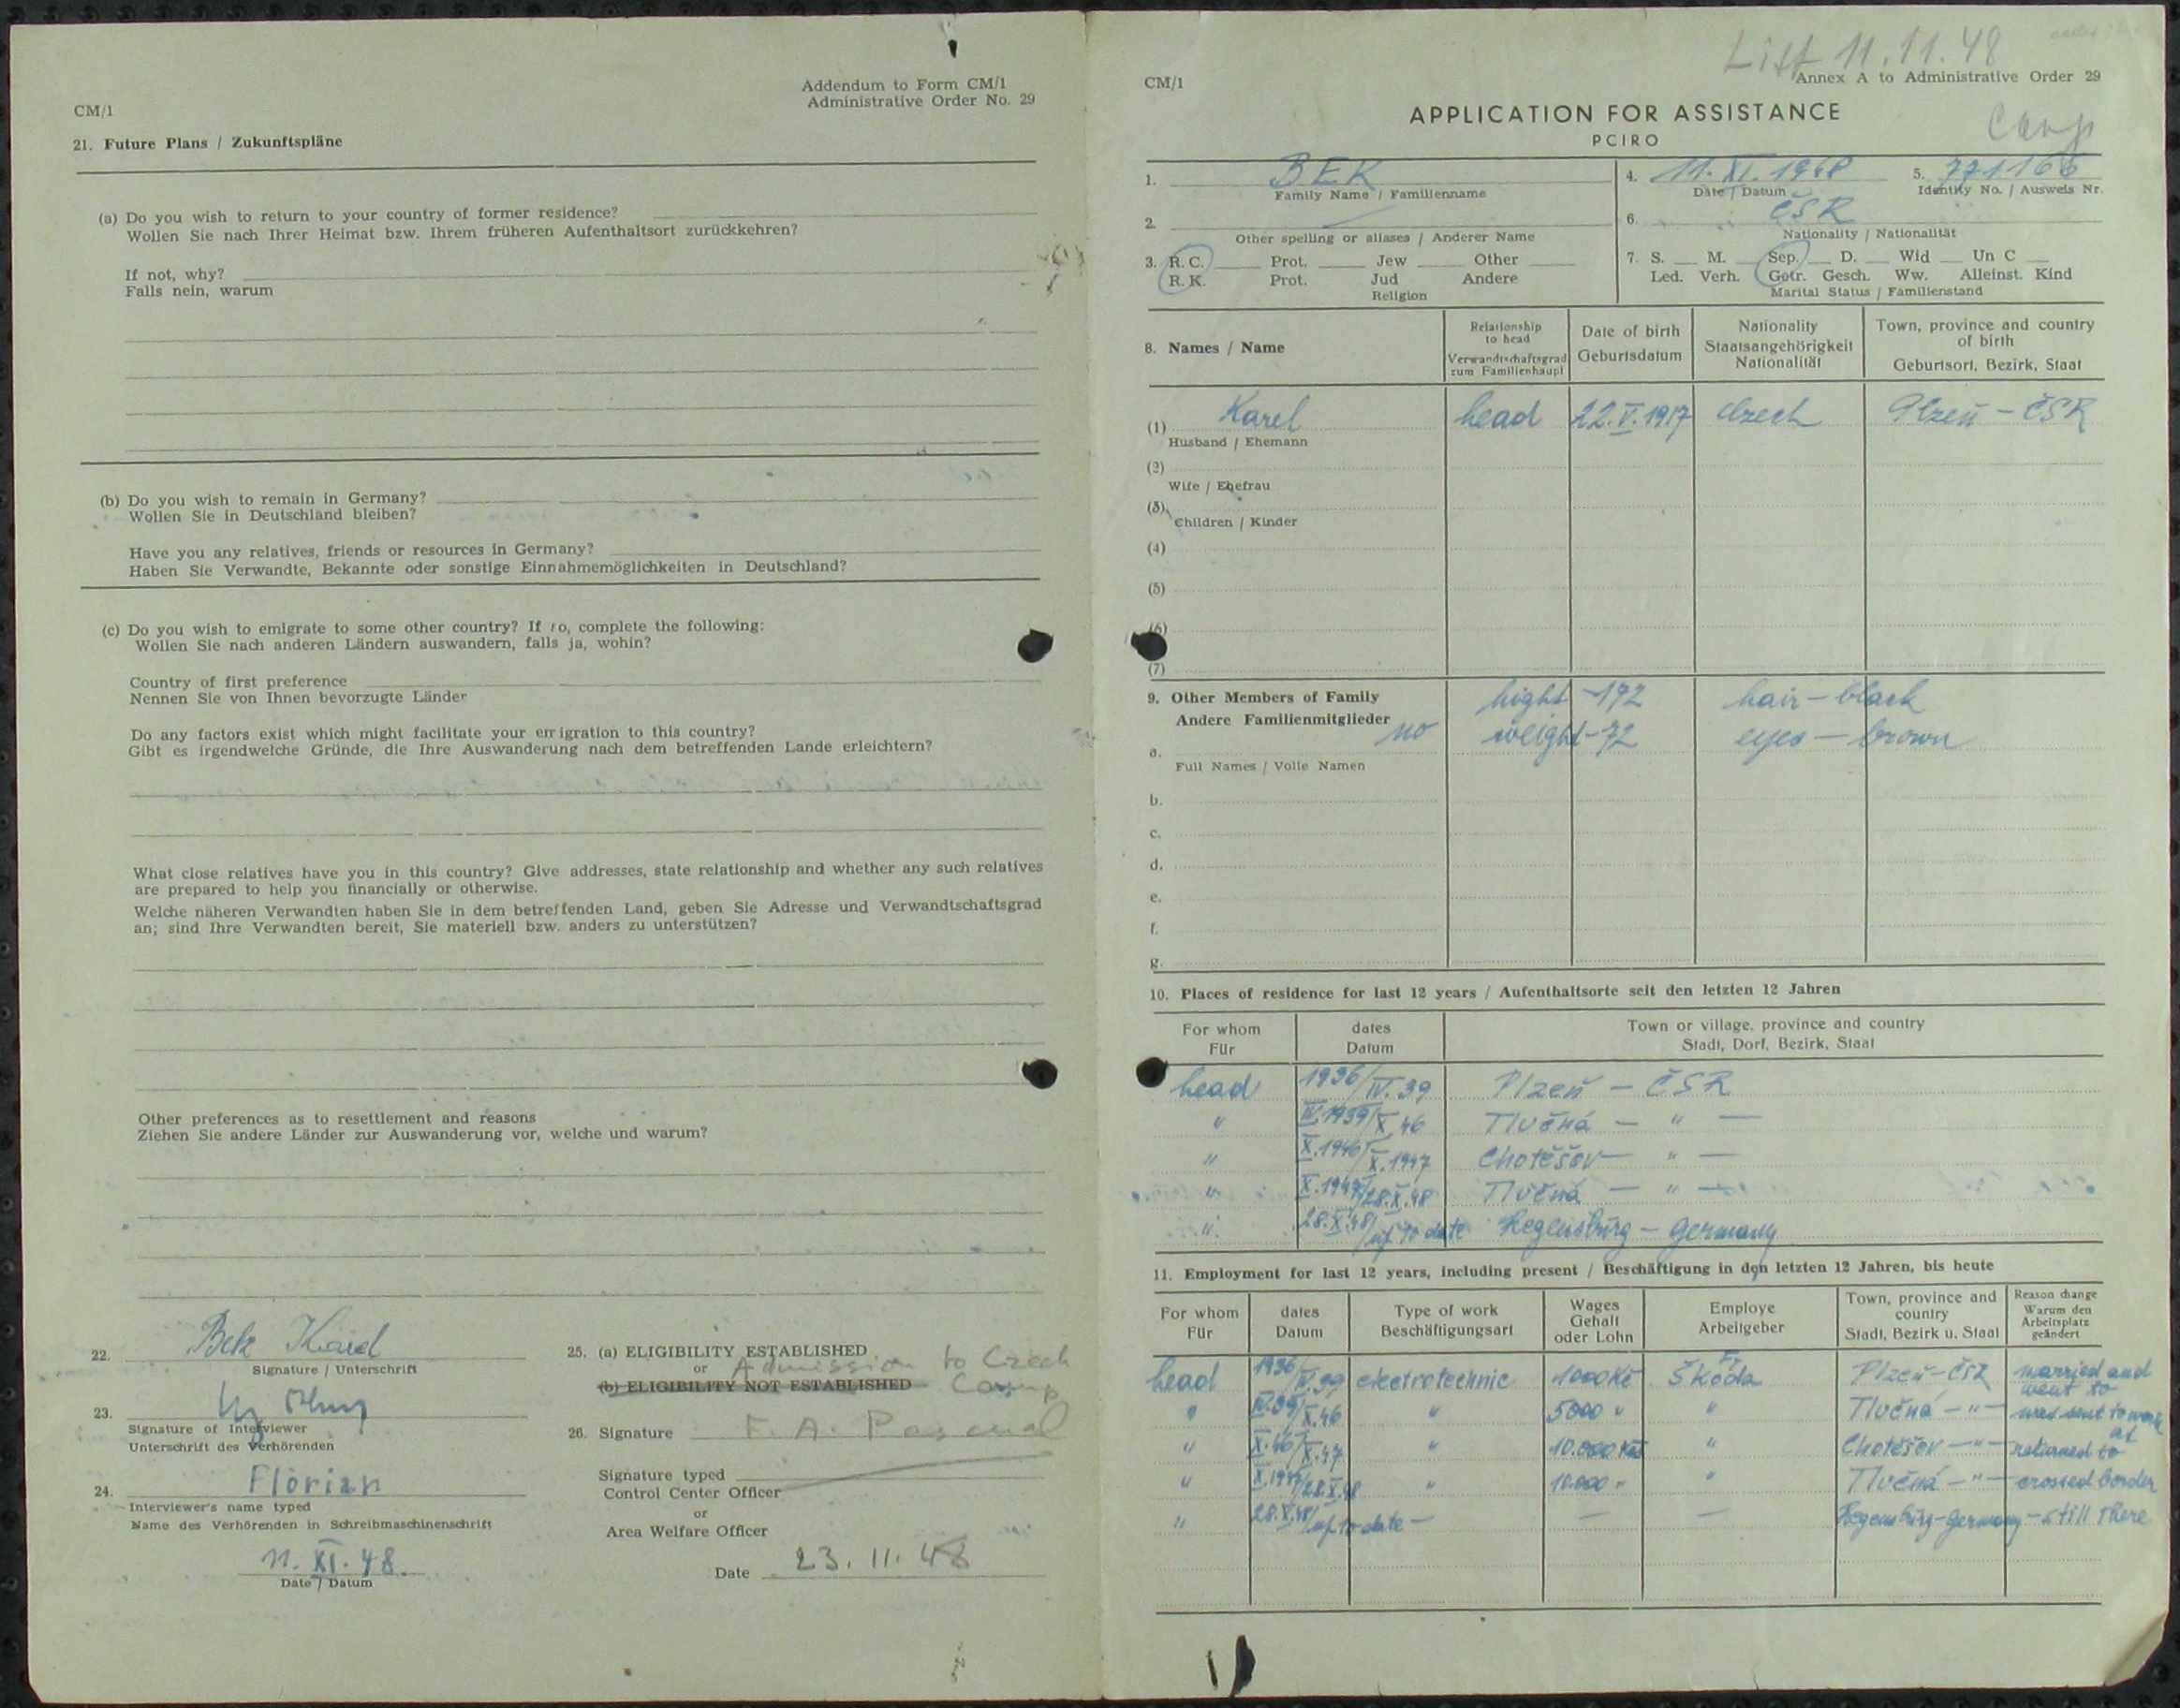 CM/1
Addendum to Form CM/1
Administrative Order No. 29
21. Future Plans / Zukunftspläne
(a) Do you wish to return to your country of former residence?
Wollen Sie nach Ihrer Heimat bzw. Ihrem früheren Aufenthaltsort zurückkehren?
If not, why?
Falls nein, warum
(b) Do you wish to remain in Germany?
Wollen Sie in Deutschland bleiben?
Have you any relatives, friends or resources in Germany?
Haben Sie Verwandte, Bekannte oder sonstige Einnahmemöglichkeiten in Deutschland?
(c) Do you wish to emigrate to some other country? If so, complete the following:
Wollen Sie nach anderen Ländern auswandern, falls ja, wohin?
Country of first preference
Nennen Sie von Ihnen bevorzugte Länder
Do any factors exist which might facilitate your emigration to this country?
Gibt es irgendwelche Gründe, die Ihre Auswanderung nach dem betreffenden Lande erleichtern?
What close relatives have you in this country? Give addresses, state relationship and whether any such relatives
are prepared to help you financially or otherwise.
Welche näheren Verwandten haben Sie in dem betreffenden Land, geben Sie Adresse und Verwandtschaftsgrad
an; sind Ihre Verwandten bereit, Sie materiell bzw. anders zu unterstützen?
Other preferences as to resettlement and reasons
Ziehen Sie andere Länder zur Auswanderung vor, welche und warum?
22. Bek Karel
Signature / Unterschrift
23.
Signature of Interviewer
Unterschrift des Verhörenden
24. Florian
Interviewer's name typed
Name des Verhörenden in Schreibmaschinenschrift
11. XI. 48.
Date / Datum
25. (a) ELIGIBILITY ESTABLISHED
or Admission to Czech
(b) ELIGIBILITY NOT ESTABLISHED Camp
26. Signature F. A. Pascual
Signature typed
Control Center Officer
or
Area Welfare Officer
Date 23. 11. 48
Lift 11.11.48
CM/1
Annex A to Administrative Order 29
APPLICATION FOR ASSISTANCE
Camp
PCIRO
1. BEK
Family Name / Familienname
4. 11. XI. 1948
Date / Datum
5. 771166
Identity No. / Ausweis Nr.
2.
Other spelling or aliases / Anderer Name
6. ČSR
Nationality / Nationalität
3. R. C. Prot. Jew Other
R. K. Prot. Jud Andere
Religion
7. S. M. Sep. D. Wid Un C
Led. Verh. Getr. Gesch. Ww. Alleinst. Kind
Marital Status / Familienstand
8. Names / Name
Relationship to head
Verwandtschaftsgrad zum Familienhaupt
Date of birth
Geburtsdatum
Nationality
Staatsangehörigkeit
Nationalität
Town, province and country of birth
Geburtsort, Bezirk, Staat
(1) Karel head 22.V.1917 Czech Plzeň - ČSR
Husband / Ehemann
(2)
Wife / Ehefrau
(3)
Children / Kinder
(4)
(5)
(6)
(7)
9. Other Members of Family hight - 172 hair - black
Andere Familienmitglieder no weight - 72 eyes - brown
a.
Full Names / Volle Namen
b.
c.
d.
e.
f.
g.
10. Places of residence for last 12 years / Aufenthaltsorte seit den letzten 12 Jahren
For whom dates Town or village, province and country
Für Datum Stadt, Dorf, Bezirk, Staat
head 1936/IV.39 Plzeň - ČSR
" IV.1939/X.46 Tlučná - " -
" X.1946/X.1947 Chotěšov - " -
" X.1947/28.X.48 Tlučná - " -
" 28.X.48/up to date Regensburg - Germany
11. Employment for last 12 years, including present / Beschäftigung in den letzten 12 Jahren, bis heute
For whom dates Type of work Wages Employe Town, province and country Reason change
Für Datum Beschäftigungsart Gehalt oder Lohn Arbeitgeber Stadt, Bezirk u. Staat Warum den Arbeitsplatz geändert
head 1936/IV.39 electrotechnic 1000 Kč Škoda Plzeň - ČSR married and went to
" IV.39/X.46 " 5000 " " Tlučná - " - was sent to work at
" X.46/X.47 " 10.000 Kčs " Chotěšov - " - returned to
" X.1947/28.X.48 " 10.000 " " Tlučná - " - crossed border
" 28.X.48/up to date - - - Regensburg - Germany - still there